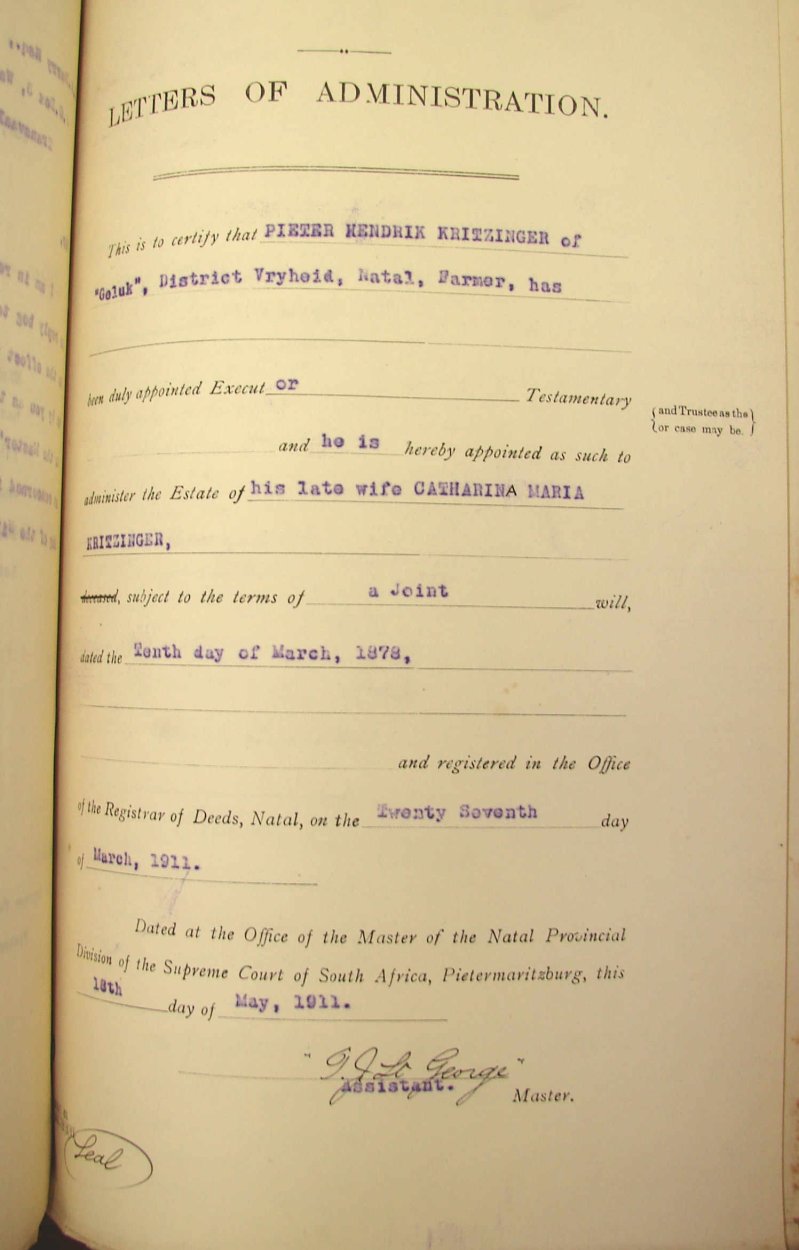 LETTERS OF ADMINISTRATION.
This is to certify that PIETER HENDRIK KRITZINGER of
"Geluk", District Vryheid, Natal, Farmer, has
been duly appointed Execut or Testamentary
(and Trustee as the)
(or case may be.)
and he is hereby appointed as such to
administer the Estate of his late wife CATHARINA MARIA
KRITZINGER,
deceased, subject to the terms of a Joint will,
dated the Tenth day of March, 1878,
and registered in the Office
of the Registrar of Deeds, Natal, on the Twenty Seventh day
of March, 1911.
Dated at the Office of the Master of the Natal Provincial
Division of the Supreme Court of South Africa, Pietermaritzburg, this
18th day of May, 1911.
" George"
Assistant. Master.
Seal